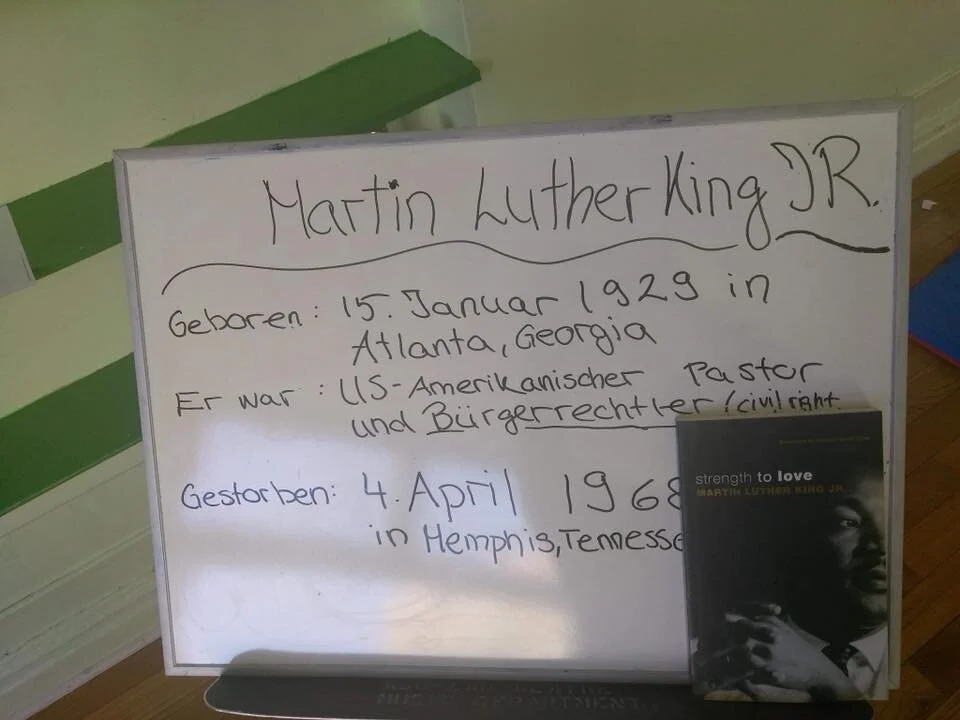 Martin Luther King JR.
Geboren: 15. Januar 1929 in
Atlanta, Georgia
Er war: US-Amerikanischer Pastor
und Bürgerrechtler /civil right
Gestorben: 4. April 1968
in Memphis, Tennesse
strength to love
MARTIN LUTHER KING JR.